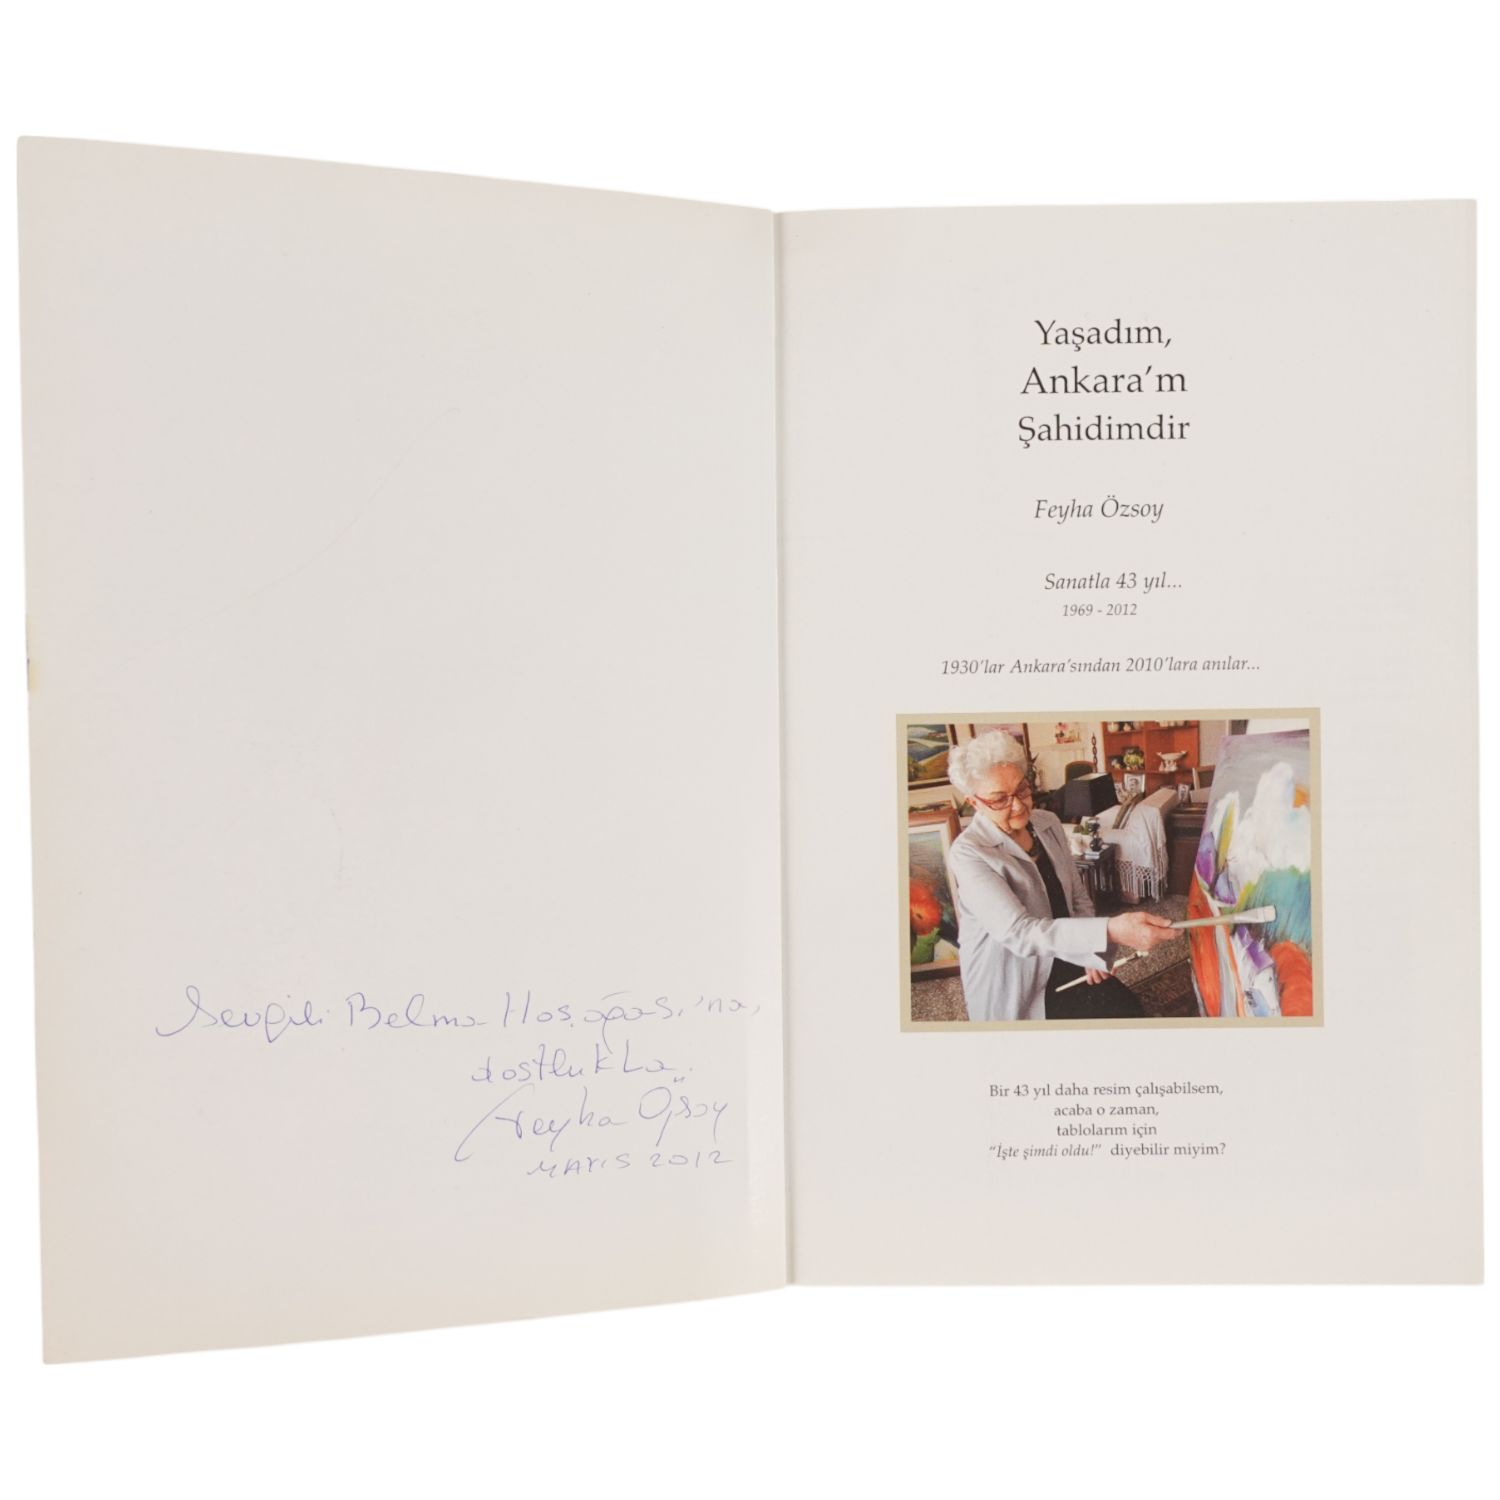 Sevgili Belma Hoşağası'na,
dostlukla.
Feyha Özsoy
MAYIS 2012
Yaşadım,
Ankara'm
Şahidimdir
Feyha Özsoy
Sanatla 43 yıl...
1969 - 2012
1930'lar Ankara'sından 2010'lara anılar...
Bir 43 yıl daha resim çalışabilsem,
acaba o zaman,
tablolarım için
"İşte şimdi oldu!" diyebilir miyim?